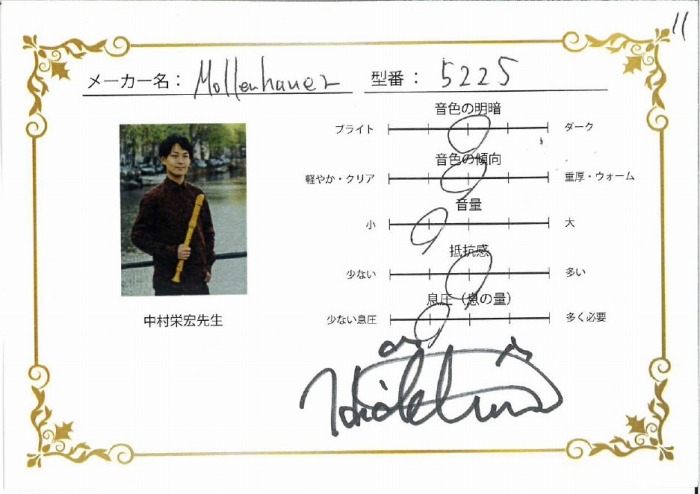 11
メーカー名： Mollenhauer 型番： 5225
音色の明暗
ブライト ダーク
音色の傾向
軽やか・クリア 重厚・ウォーム
音量
小 大
抵抗感
少ない 多い
息圧（息の量）
少ない息圧 多く必要
中村栄宏先生